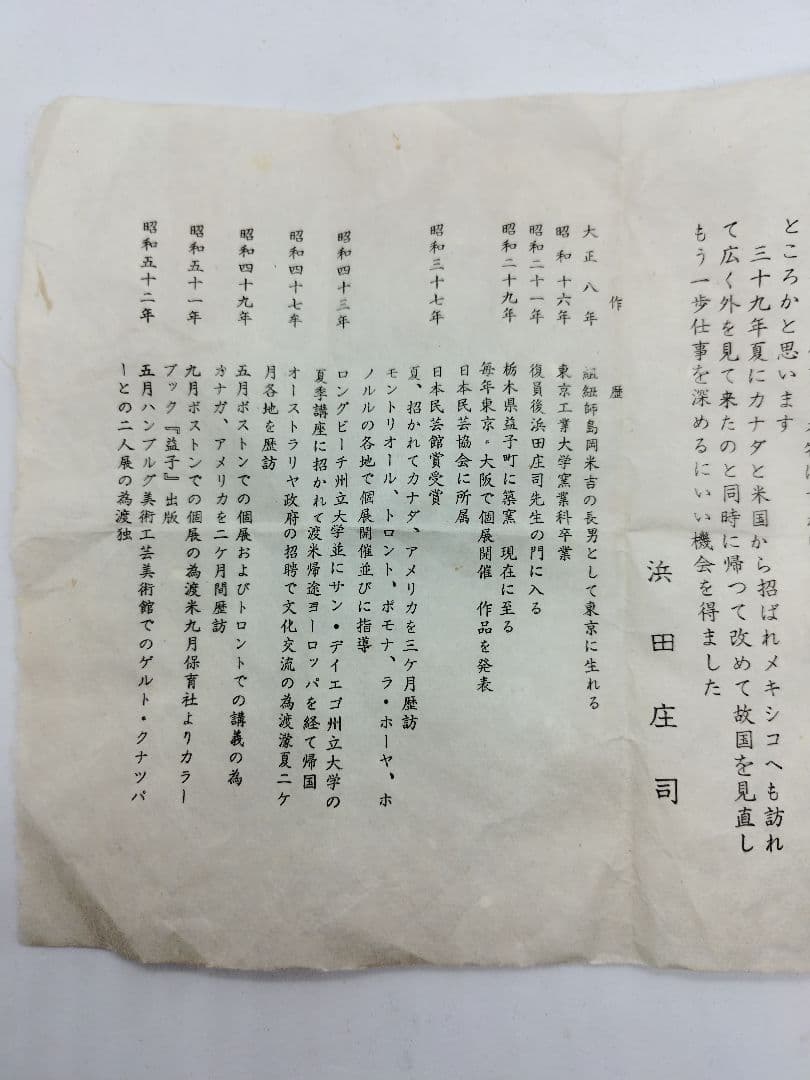 ところかと思います
三十九年夏にカナダと米国から招ばれメキシコへも訪れ
て広く外を見て来たのと同時に帰つて改めて故国を見直し
もう一歩仕事を深めるにいい機会を得ました
浜田庄司
作歴
大正八年 組紐師島岡米吉の長男として東京に生れる
昭和十六年 東京工業大学窯業科卒業
昭和二十一年 復員後浜田庄司先生の門に入る
昭和二十九年 栃木県益子町に築窯 現在に至る
毎年東京・大阪で個展開催 作品を発表
日本民芸協会に所属
昭和三十七年 日本民芸館賞受賞
夏、招かれてカナダ、アメリカを三ケ月歴訪
モントリオール、トロント、ポモナ、ラ・ホーヤ、ホ
ノルルの各地で個展開催並びに指導
昭和四十三年 ロングビーチ州立大学並にサン・デイエゴ州立大学の
夏季講座に招かれて渡米帰途ヨーロッパを経て帰国
昭和四十七年 オーストラリヤ政府の招聘で文化交流の為渡濠夏二ケ
月各地を歴訪
昭和四十九年 五月ボストンでの個展およびトロントでの講義の為
カナダ、アメリカを二ケ月間歴訪
昭和五十一年 九月ボストンでの個展の為渡米九月保育社よりカラー
ブック『益子』出版
昭和五十二年 五月ハンブルグ美術工芸美術館でのゲルト・クナツパ
ーとの二人展の為渡独